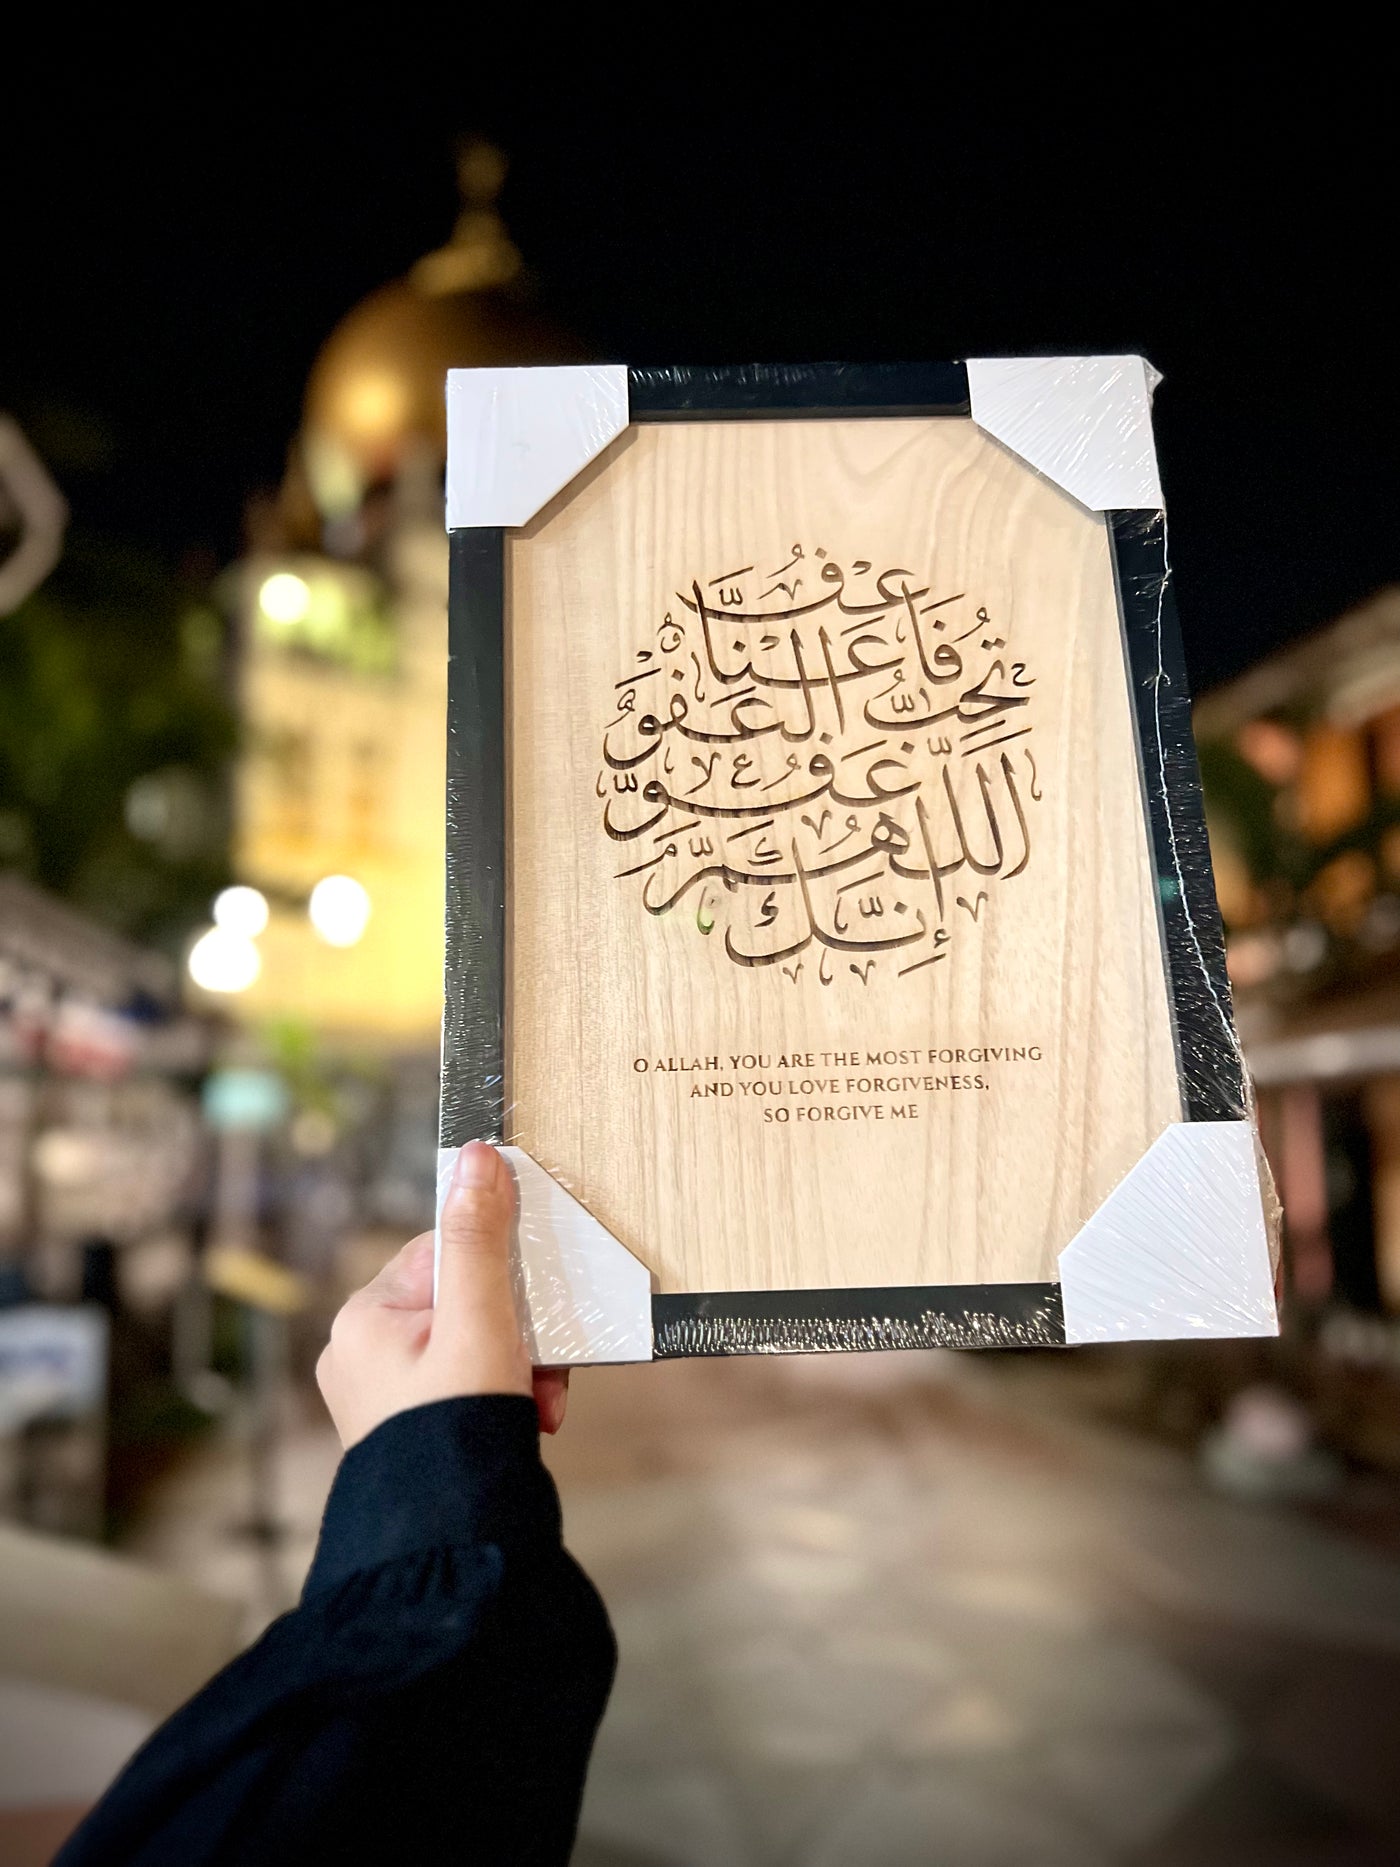 اللَّهُمَّ
إِنَّكَ
عَفُوٌّ
تُحِبُّ الْعَفْوَ
فَاعْفُ عَنَّا
O ALLAH, YOU ARE THE MOST FORGIVING
AND YOU LOVE FORGIVENESS,
SO FORGIVE ME